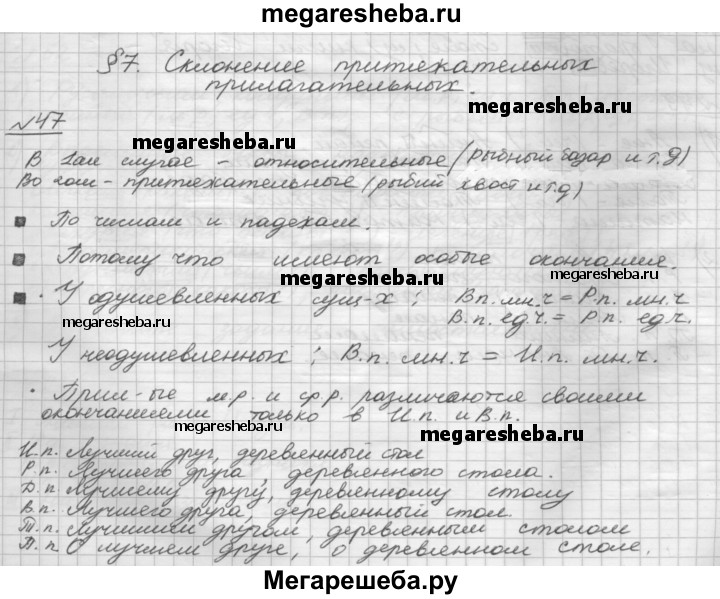 megaresheba.ru
§7. Склонение притяжательных
прилагательных.
megaresheba.ru
№47
megaresheba.ru
В 1ом случае - относительные (рыбный базар и т.д)
Во 2ом - притяжательные (рыбий хвост и т.д)
По числам и падежам.
Потому что имеют особые окончания.
megaresheba.ru
megaresheba.ru
· У одушевленных сущ-х ; В.п. мн.ч = Р.п. мн.ч
В.п. ед.ч. = Р.п. ед.ч.
megaresheba.ru
У неодушевленных ; В.п. мн.ч = И.п. мн.ч.
megaresheba.ru
· Прил-ые м.р. и ср.р. различаются своими
окончаниями только в И.п. и В.п.
megaresheba.ru
megaresheba.ru
И.п. Лучший друг, деревянный стол
Р.п. Лучшего друга, деревянного стола.
Д.п. Лучшему другу, деревянному столу
В.п. Лучшего друга, деревянный стол.
megaresheba.ru
megaresheba.ru
Т.п. Лучшим другом, деревянным столом
П.п. О лучшем друге, о деревянном столе.
Мегарешеба.ру